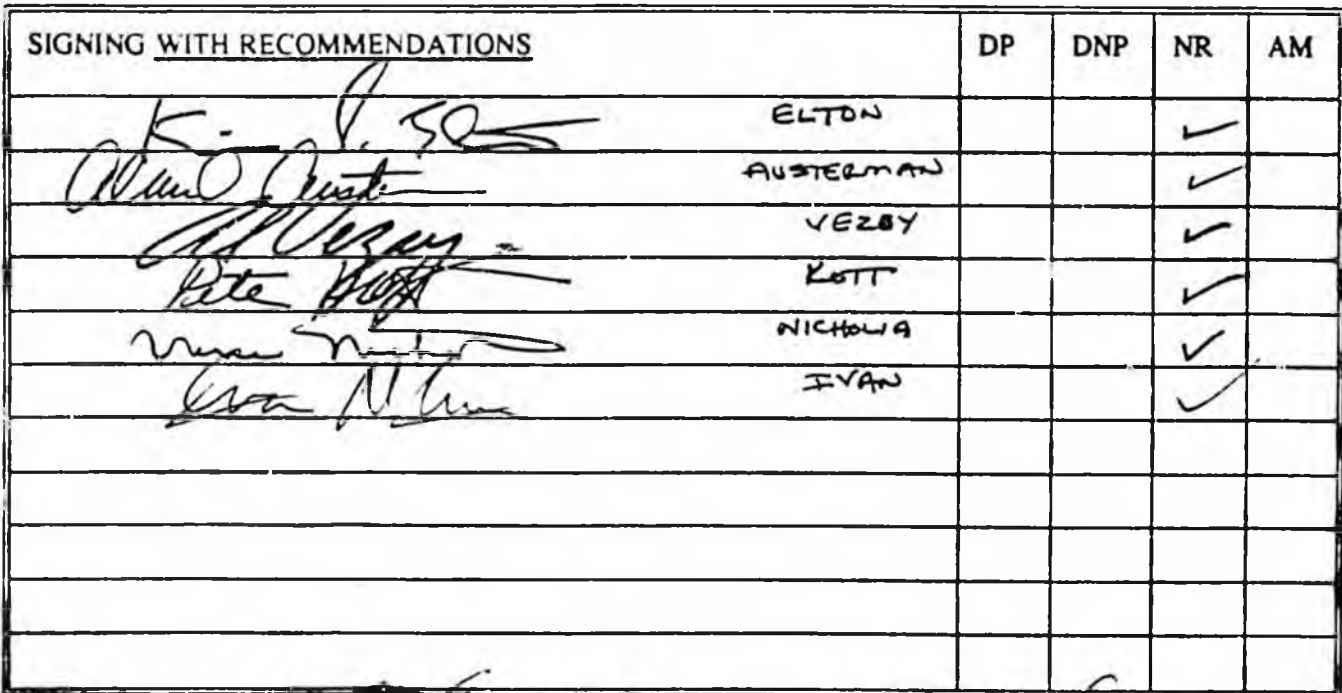 SIGNING WITH RECOMMENDATIONS DP DNP NR AM
ELTON ✓
AUSTERMAN ✓
Al Vezey VEZEY ✓
Pete Kott KOTT ✓
NICHOLIA ✓
Ivan IVAN ✓